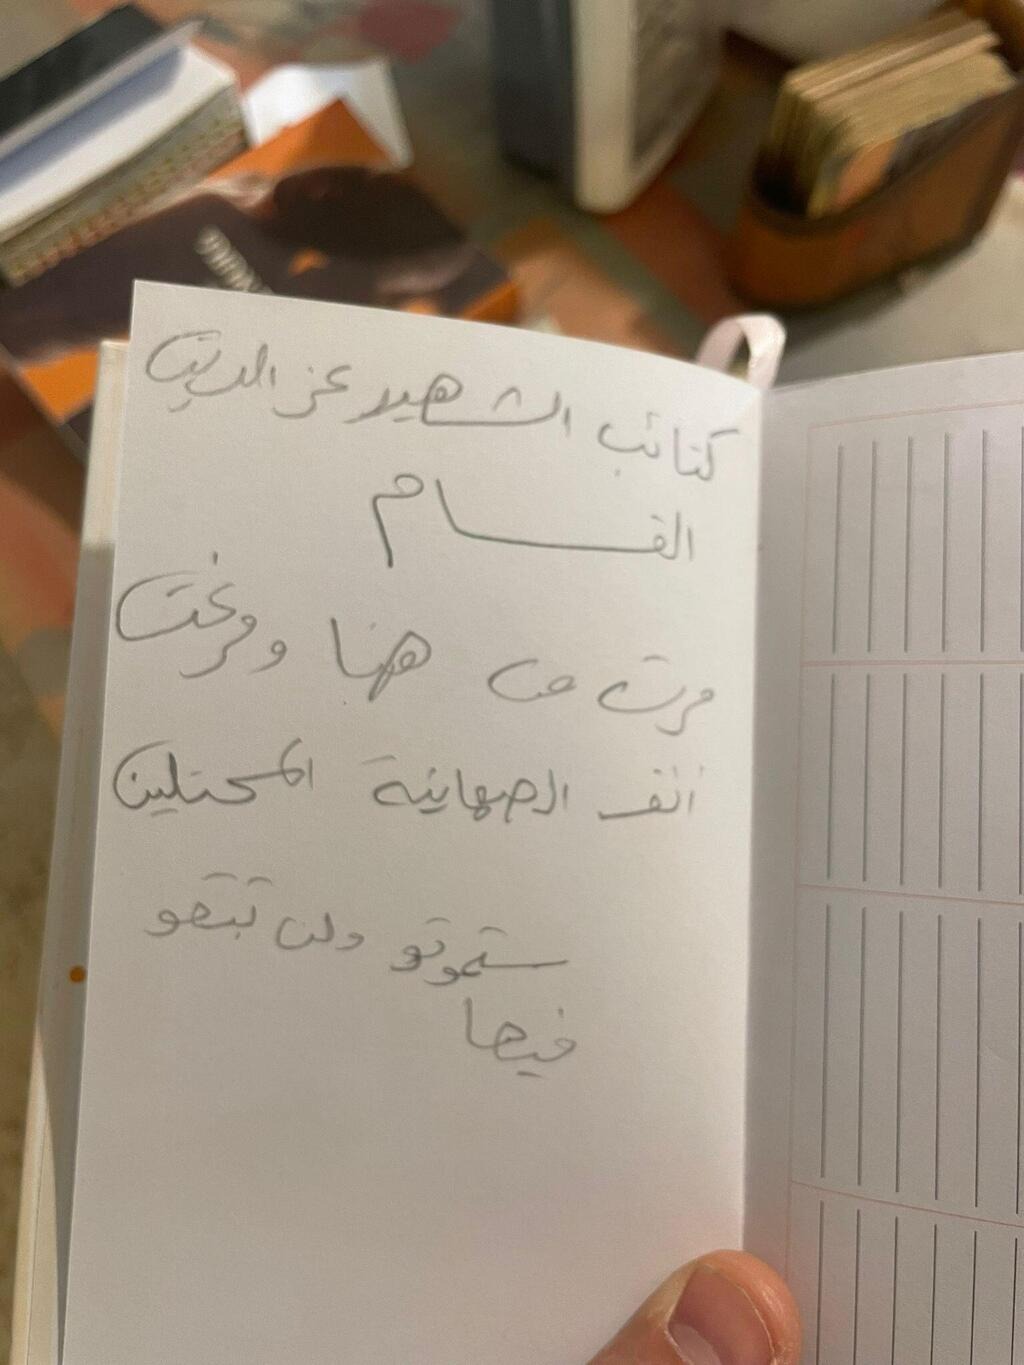 كتائب الشهيد عز الدين
القسام
مرت من هنا ومرغت
انف الصهاينة المحتلين
ستموتو ولن تبقو
فيها